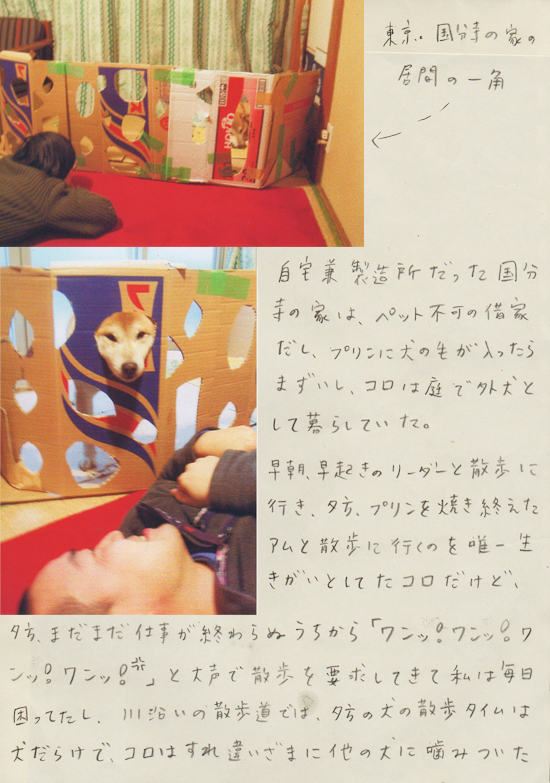 東京。国分寺の家の
居間の一角
自宅兼製造所だった国分
寺の家は、ペット不可の借家
だし、プリンに犬の毛が入ったら
まずいし、コロは庭で外犬と
して暮らしていた。
早朝、早起きのリーダーと散歩に
行き、夕方、プリンを焼き終えた
アムと散歩に行くのを唯一生
きがいとしてたコロだけど、
夕方、まだまだ仕事が終わらぬうちから「ワンッ!ワンッ!ワ
ンッ!ワンッ!」と大声で散歩を要求してきて私は毎日
困ってたし、川沿いの散歩道では、夕方の犬の散歩タイムは
犬だらけで、コロはすれ違いざまに他の犬に噛みついた